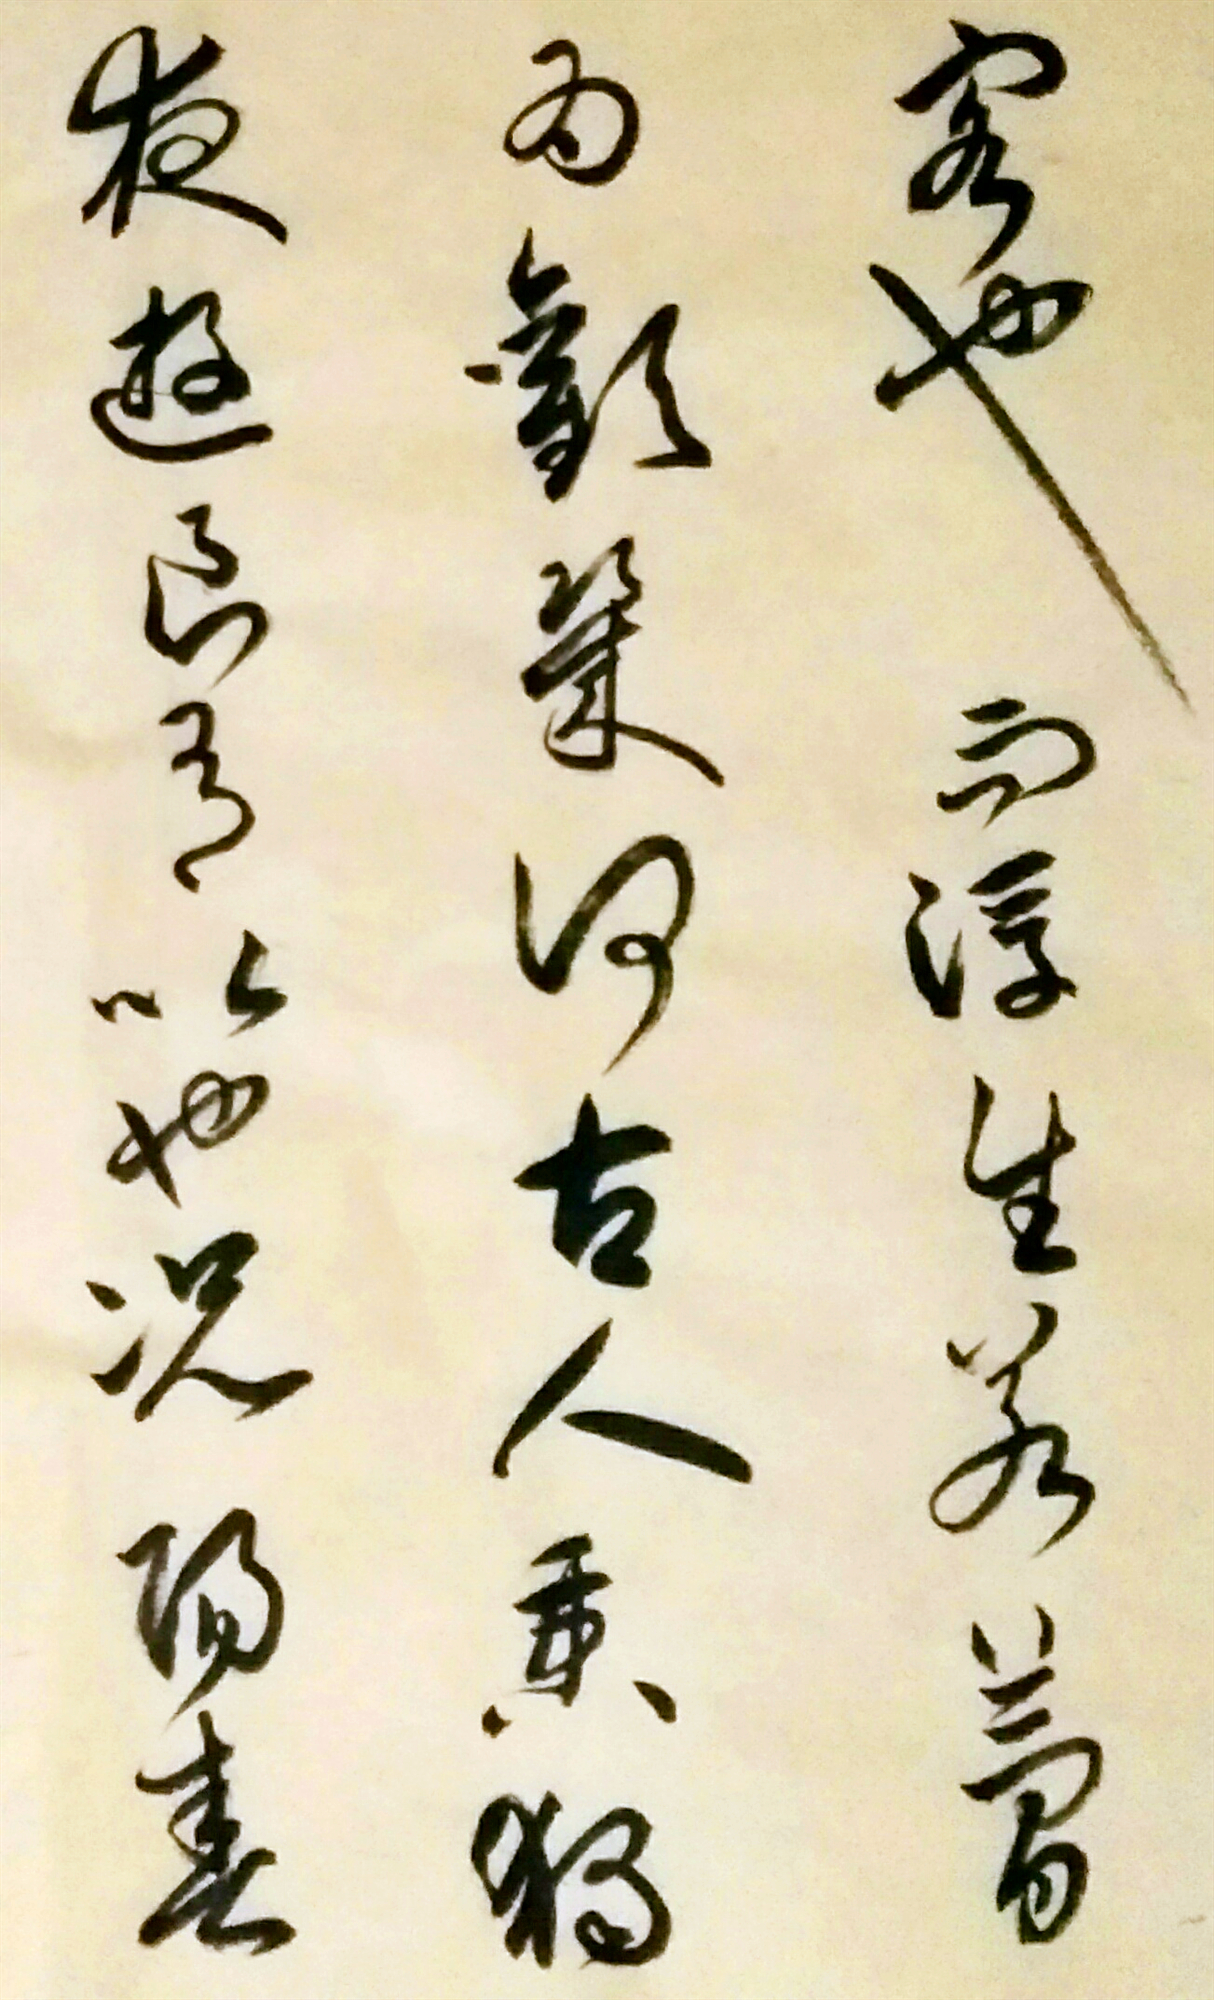 客也而浮生若夢
為歡幾何古人秉燭
夜遊良有以也况陽春